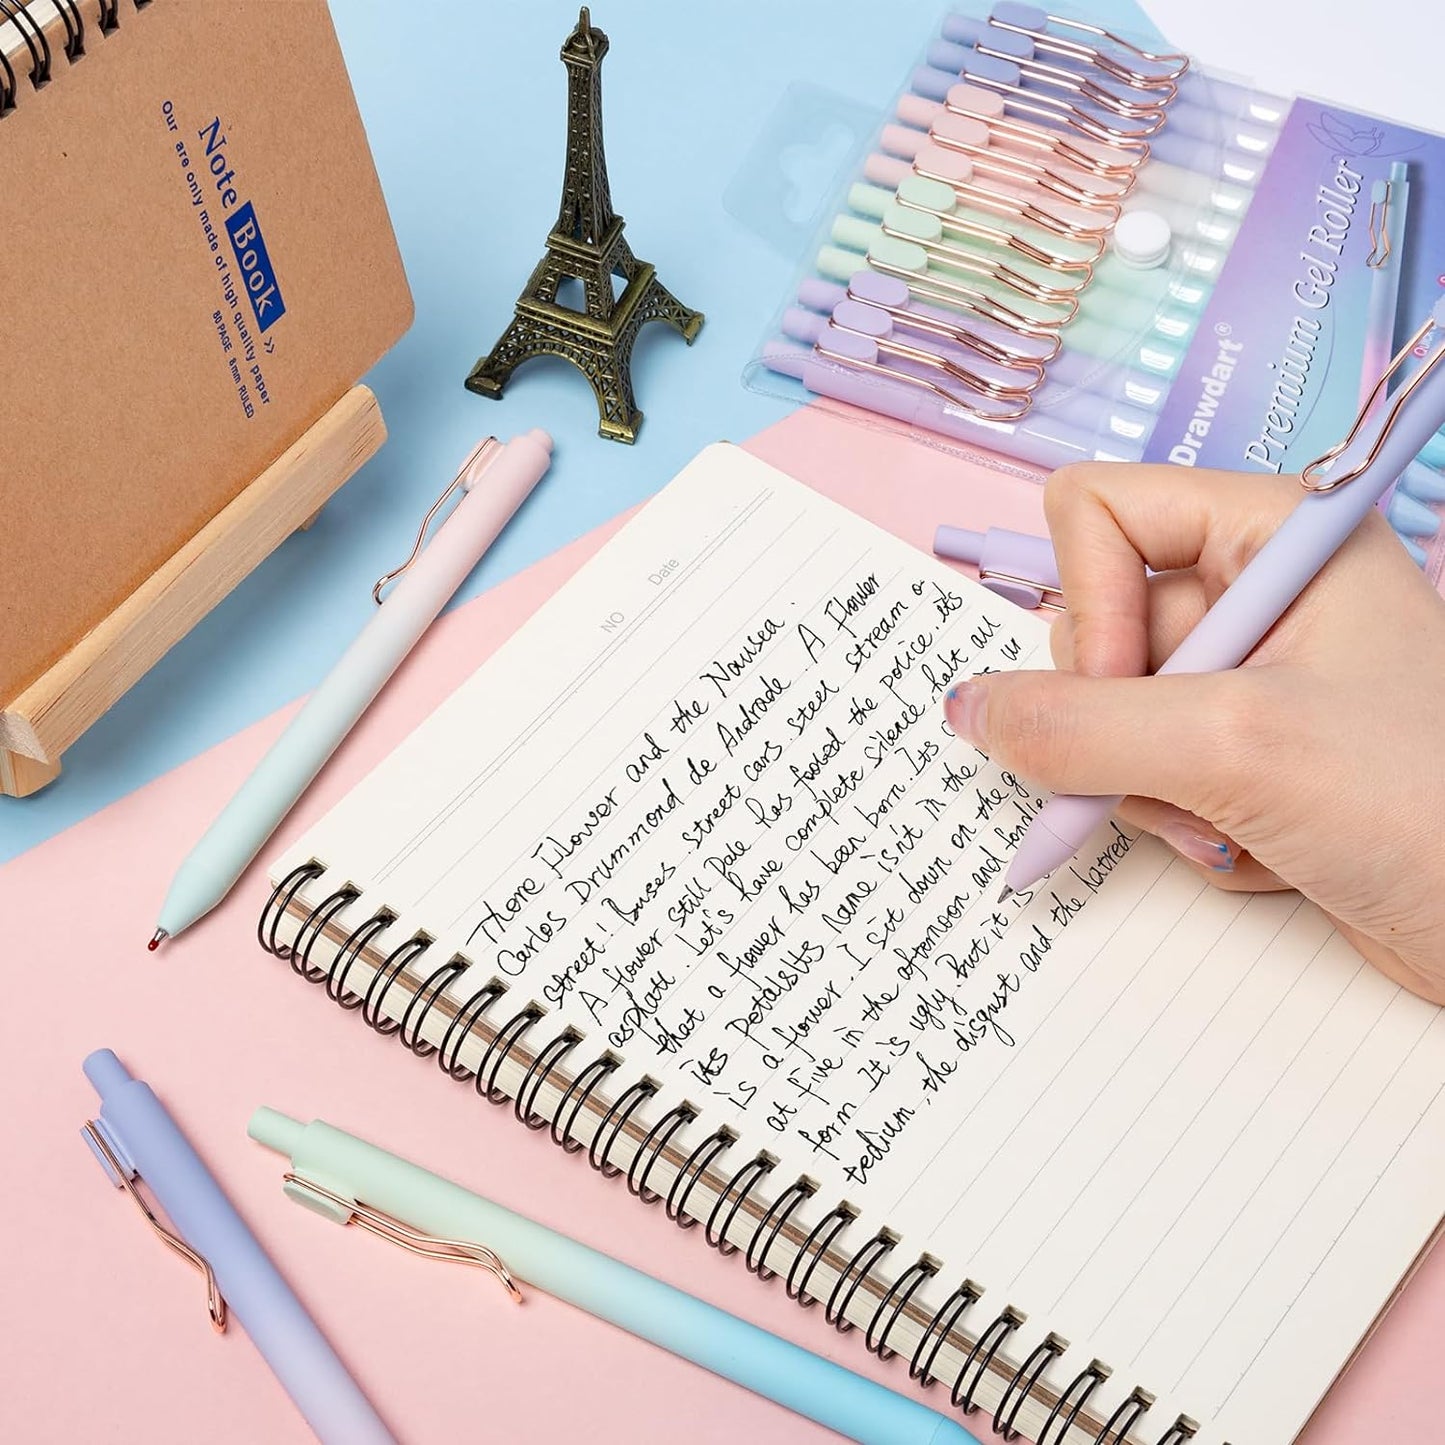 Note Book >>
Our are only made of high quality paper
80 PAGE 8mm RULED
Drawdart®
Premium Gel Roller
NO Date
Thone Flower and the Nausea.
Carlos Drummond de Andrade. A Flower
street! Buses. street cars. steel stream o
A flower still pale has fooled the police. it's
asphalt. Let's have complete silence, halt all
that a flower has been born. Its
its petalsIts name isn't in the
is a flower. I sit down on the g
at five in the afternoon and fondle
form It is ugly. But it is
tedium, the disgust and the hatred